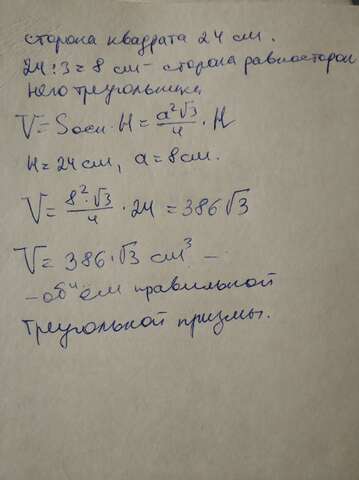 сторона квадрата 24 см.
24:3=8 см - сторона равносторон
него треугольника
V=Sосн·H=a²√3/4·H
H=24 см, a=8 см.
V=8²·√3/4·24=386√3
V=386·√3 cm³ -
-объём правильной
треугольной призмы.